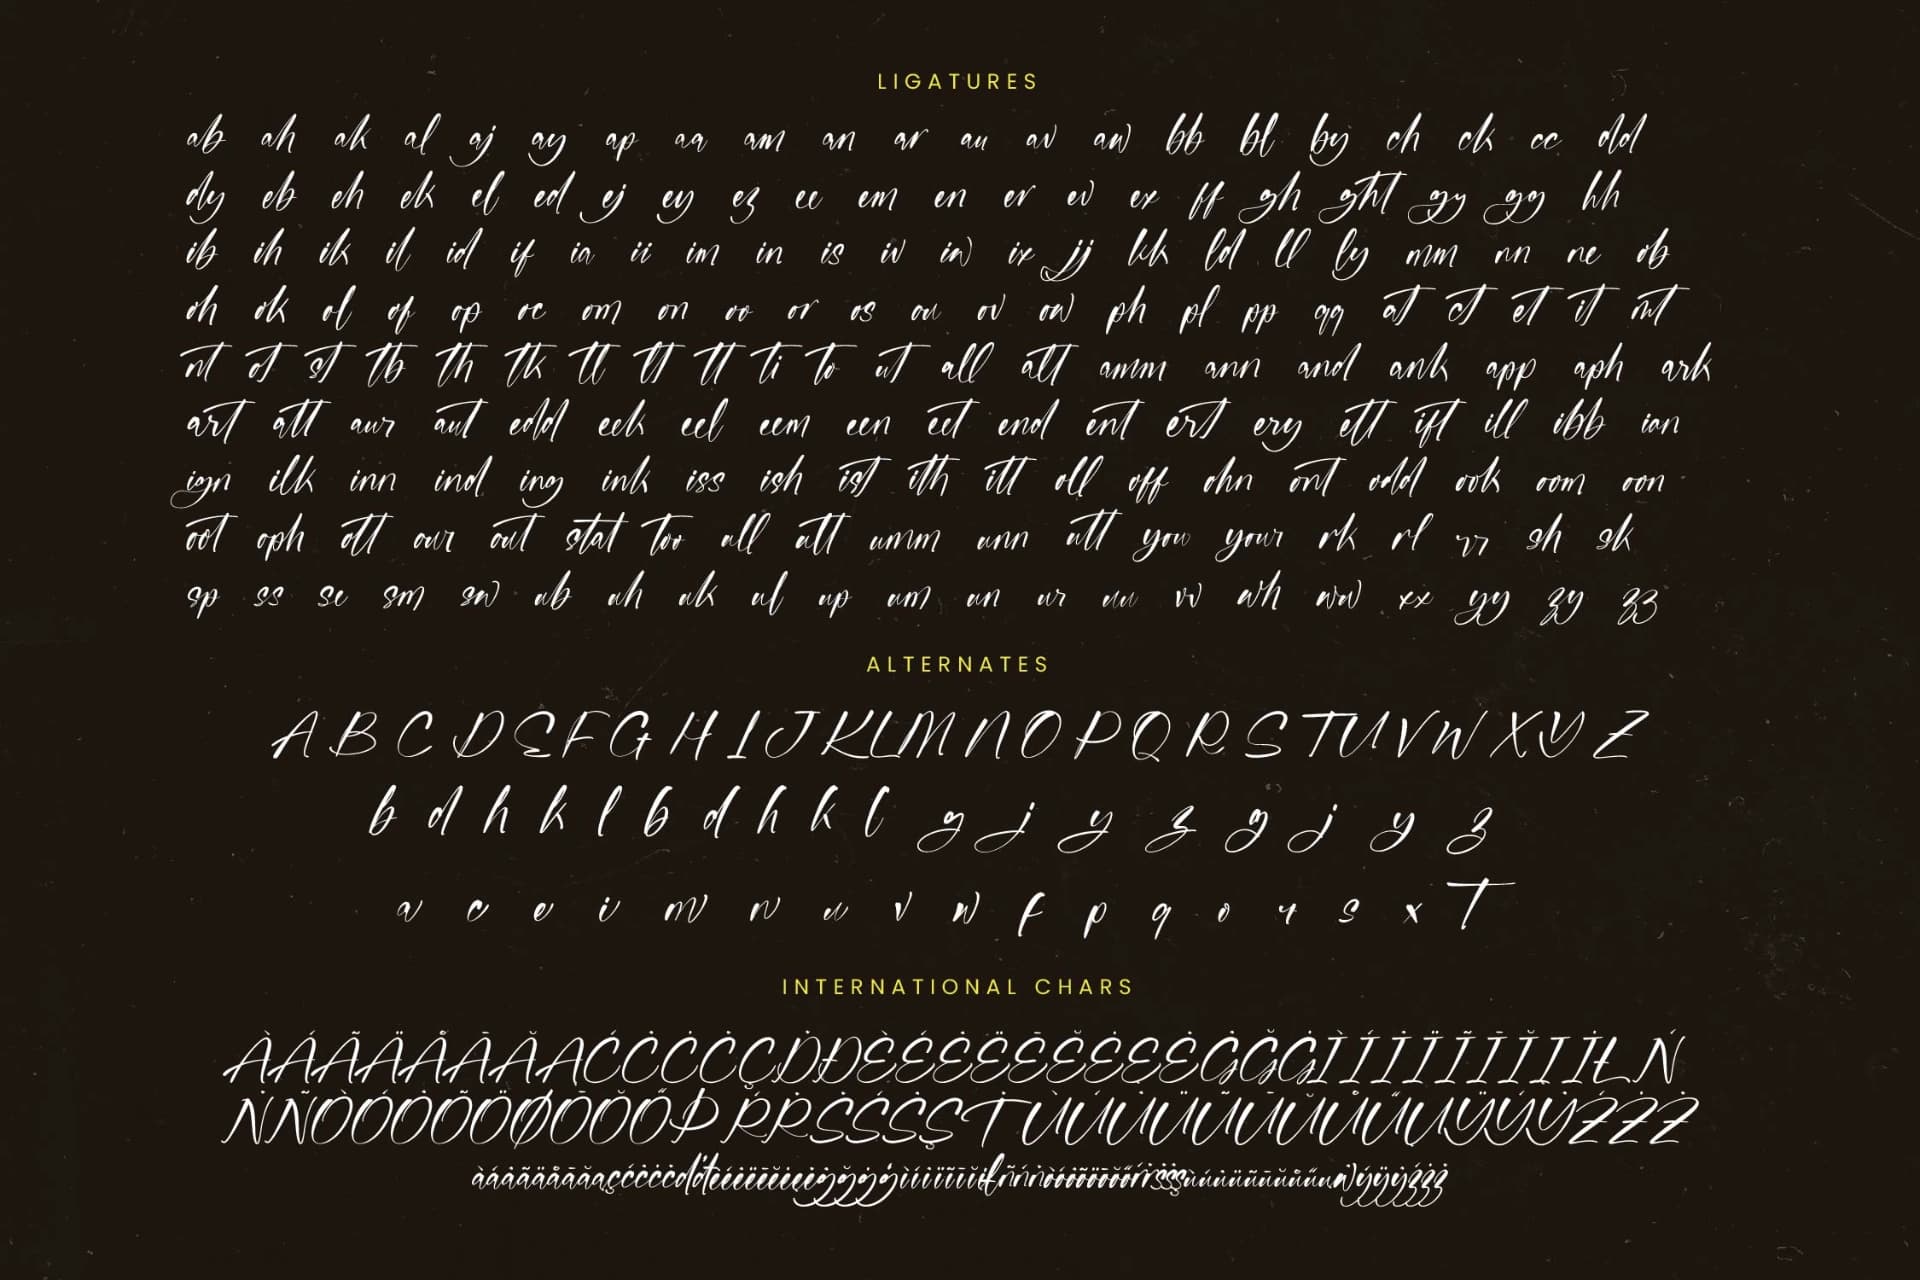 LIGATURES
ab ah ak al aj ay ap aa am an ar au av aw bb bl by ch ck cc dd
dy eb eh ek el ed ej ey ez ee em en er ev ex ff gh ght gy gg hh
ib ih ik il id if ia ii im in is iv iw ix jj kk ld ll ly mm nn ne ob
oh ok ol of op oc om on oo or os ou ov ow ph pl pp qq at ct et it mt
nt ot st tb th tk tl tt ti to ut all att amm ann and ank app aph ark
art att aur aut edd eek eel eem een eet end ent ert ery ett ift ill ibb ian
ign ilk inn ind ing ink iss ish ist ith itt oll off ohn ont odd ook oom oon
oot oph ott our out stat too ull utt umm unn you your rk rl rr sh sk
sp ss se sm sw ub uh uk ul up um un ur uu vv wh ww xx yy zy zz
ALTERNATES
A B C D E F G H I J K L M N O P Q R S T U V W X Y Z
b d h k l b d h k l g j y z g j y z
a c e i m n u v w f p q o r s x T
INTERNATIONAL CHARS